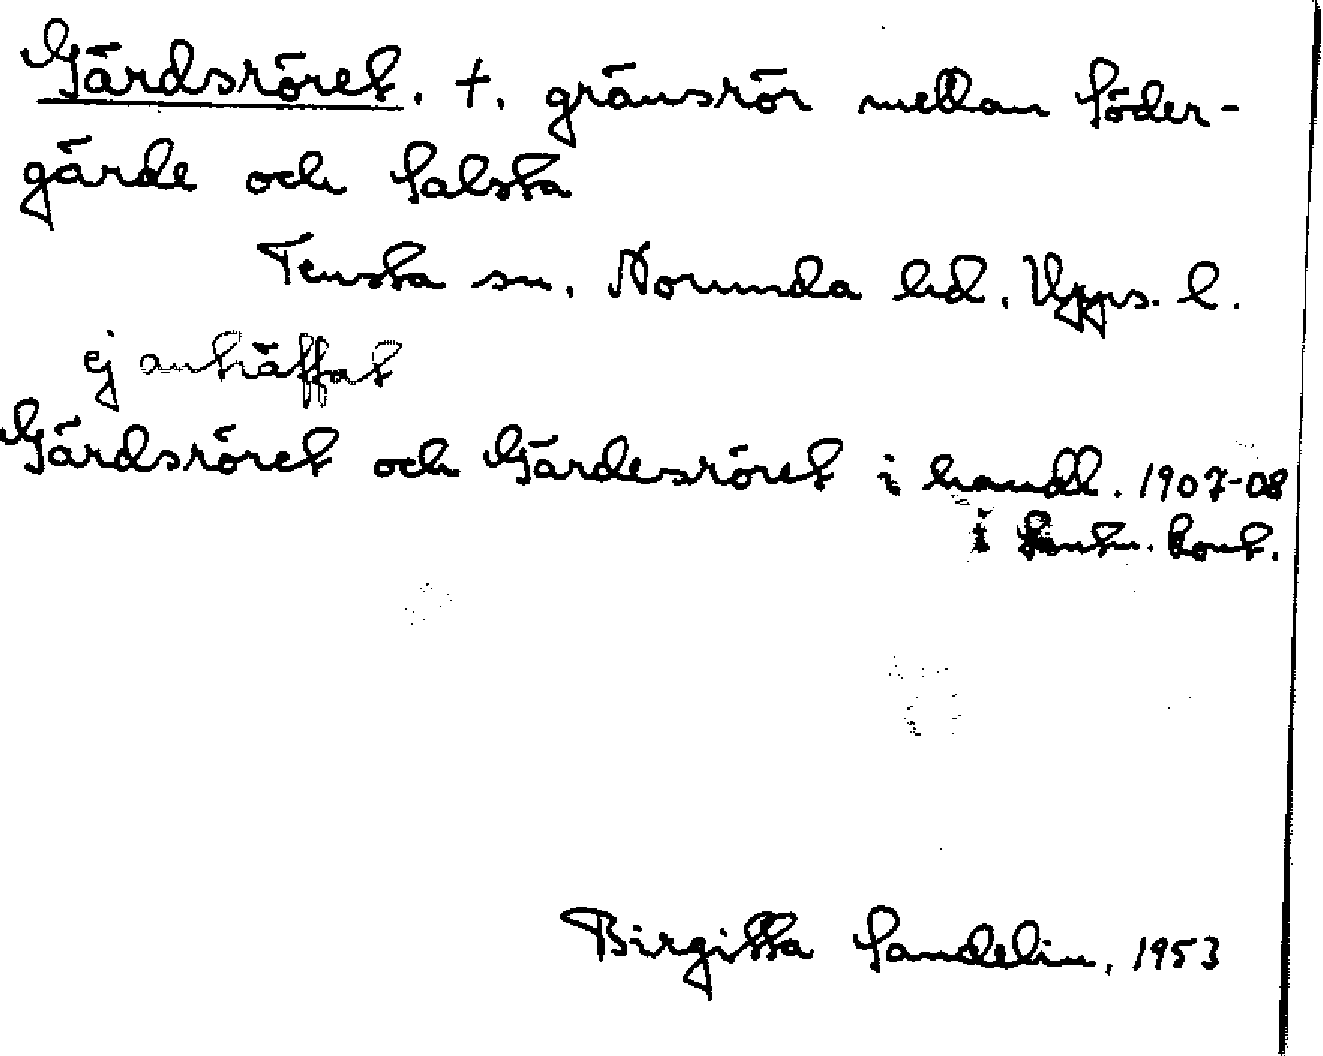 Gärdsröret. †. gränsrör mellan Söder-
gärde och Salsta
Tensta sn. Norunda hd. Upps. l.
ej anträffat
Gärdsröret och Gärdesröret i handl. 1907-08
i Lantm. kont.
Birgitta Sandelin, 1953